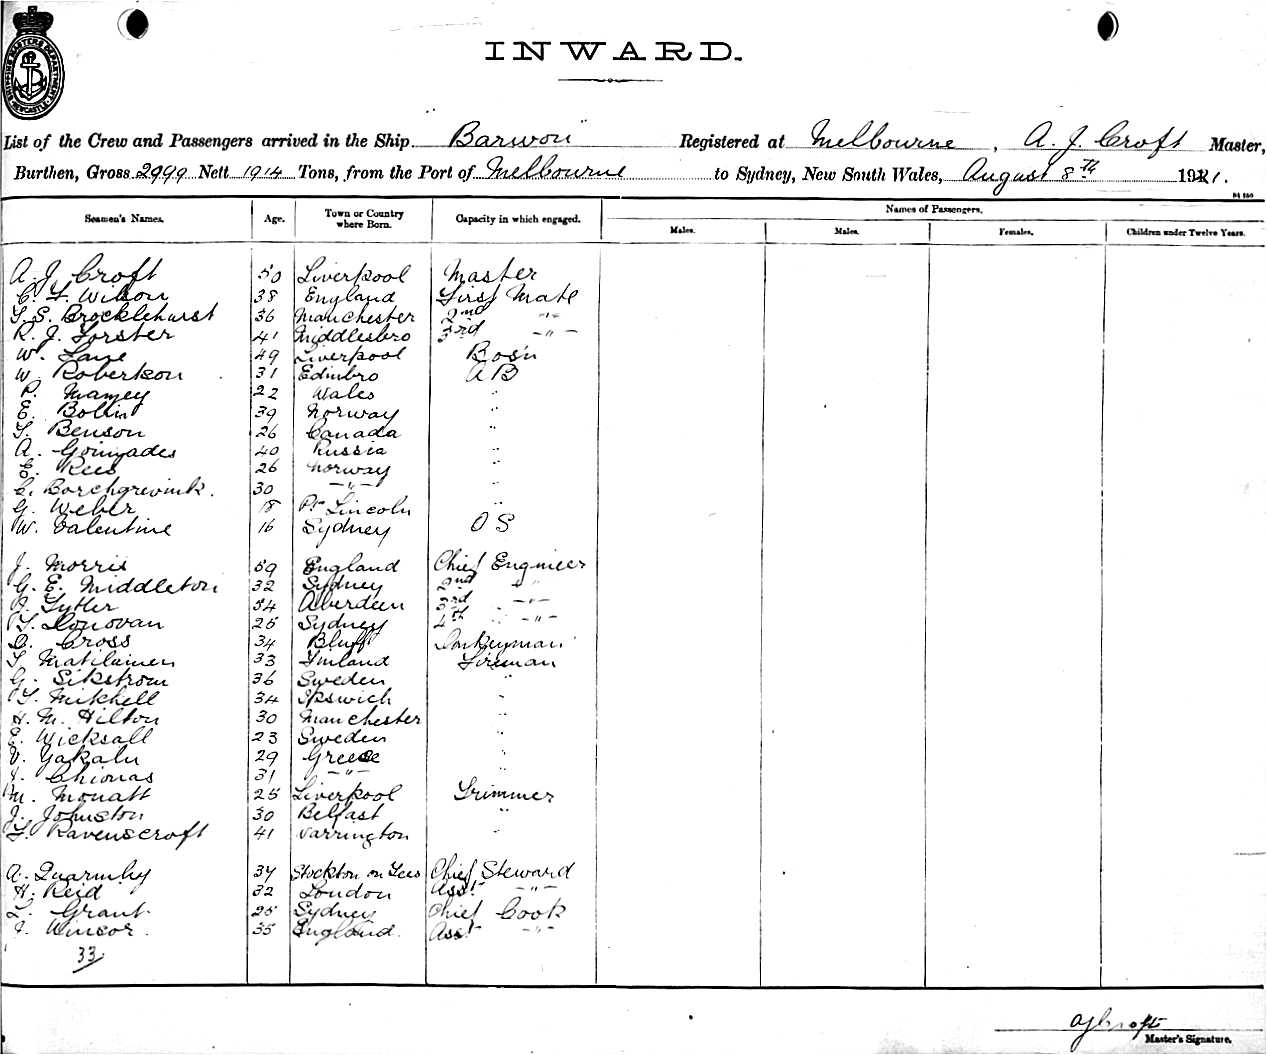 INWARD.
List of the Crew and Passengers arrived in the Ship Barwon Registered at Melbourne, A. J. Croft Master,
Burthen, Gross 2999 Nett 1914 Tons, from the Port of Melbourne to Sydney, New South Wales, August 8th 1921.
Seamen's Names. Age. Town or Country where Born. Capacity in which engaged. Names of Passengers.
Males. Males. Females. Children under Twelve Years.
A. J. Croft 50 Liverpool Master
C. F. Wilson 38 England First Mate
T. S. Brocklehurst 36 Manchester 2nd -"-
R. J. Forster 41 Middlesbro 3rd -"-
W. Lane 49 Liverpool Bos'n
W. Robertson 31 Edinbro AB
P. 22 Wales "
E. Bollin 39 Norway "
T. Benson 26 Canada "
A. 40 Russia "
E. Rees 26 Norway "
C. Borchgrevink. 30 -"- "
G. Weber 18 Pt Lincoln "
W. Valentine 16 Sydney OS
J. Morris 59 England Chief Engineer
G. E. Middleton 32 Sydney 2nd "
A. Tytler 54 Aberdeen 3rd -"-
T. Donovan 25 Sydney 4th -"-
C. Cross 34 Bluff Donkeyman
T. Matilainen 33 Finland Fireman
G. Sikstrom 36 Sweden "
T. Mitchell 34 Ipswich "
H. M. Hilton 30 Manchester "
E. Wicksall 23 Sweden "
V. Yakalu 29 Greece "
J. Chionas 31 -"- "
M. Mouatt 25 Liverpool Trimmer
J. Johnston 30 Belfast "
T. Ravenscroft 41 Warrington "
A. Quarmby 34 Stockton on Tees Chief Steward
H. Reid 32 London Asst -"-
L. Grant 25 Sydney Chief Cook
J. Wincor 35 England Asst -"-
33
AJCroft
Master's Signature.